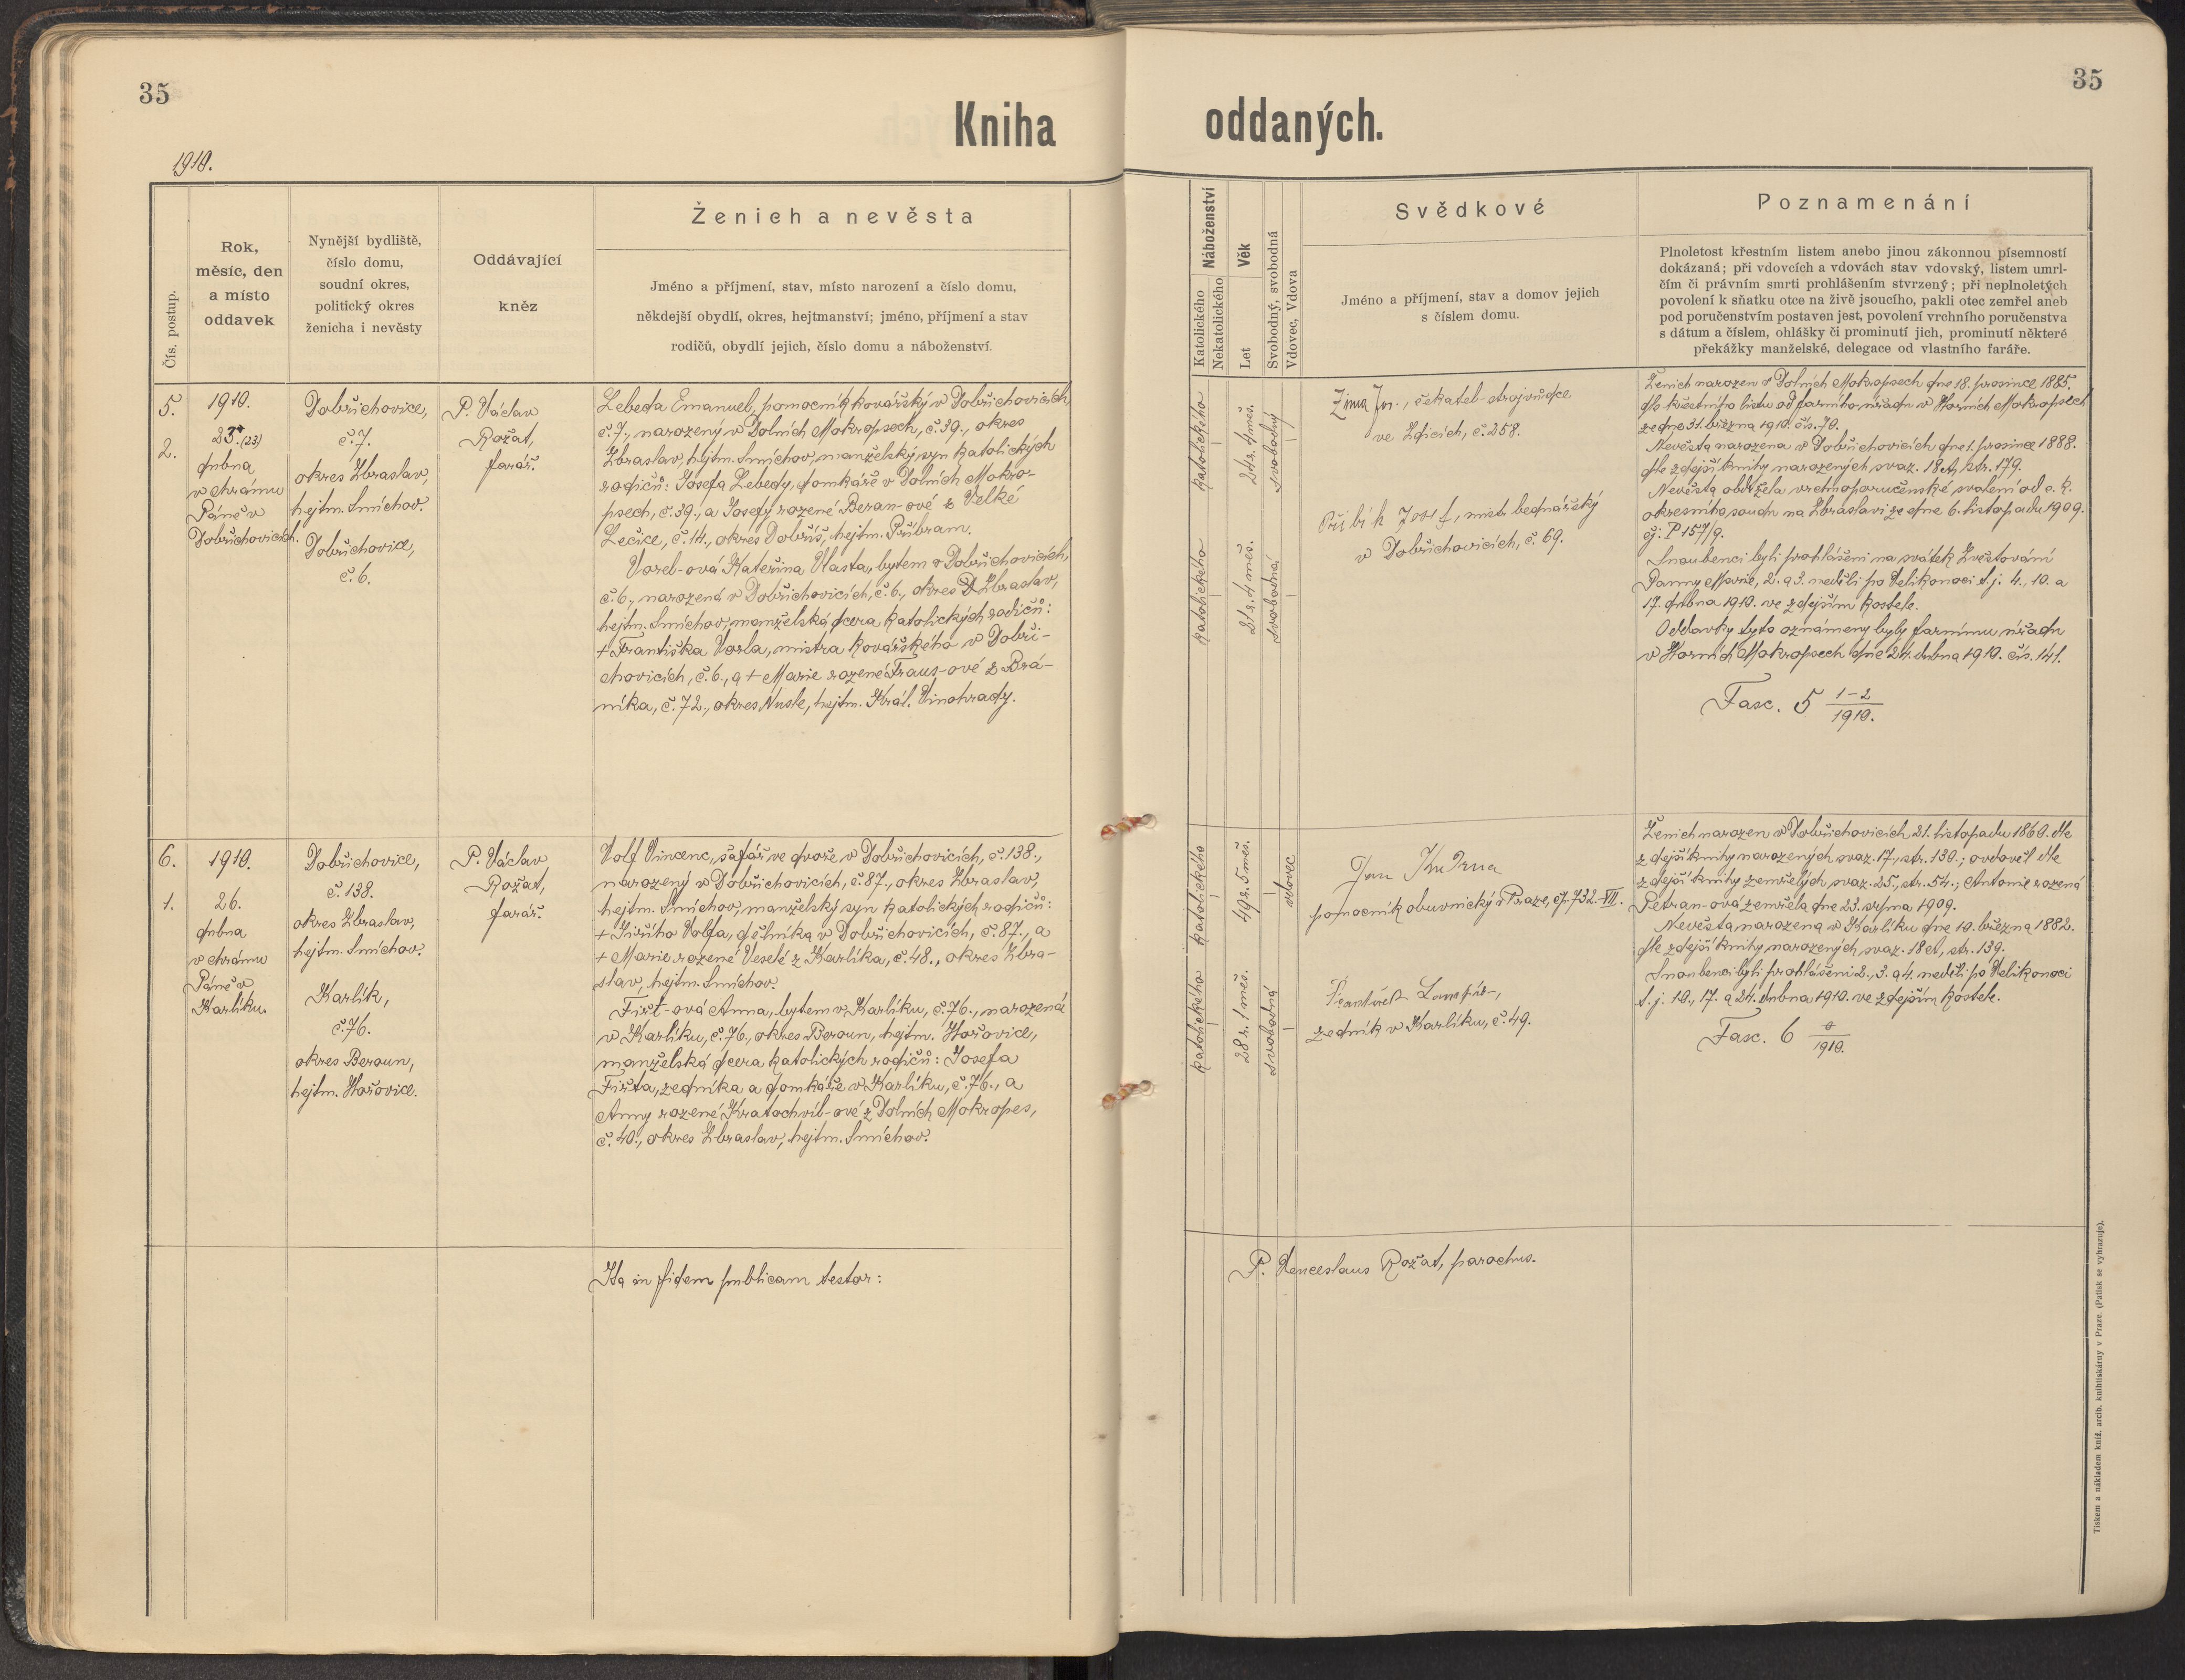 35
35
Kniha
oddaných.
1910.
Čís. postup.
Rok,
měsíc, den
a místo
oddavek
Nynější bydliště,
číslo domu,
soudní okres,
politický okres
ženicha i nevěsty
Oddávající
kněz
Ženich a nevěsta
Jméno a příjmení, stav, místo narození a číslo domu,
někdejší obydlí, okres, hejtmanství; jméno, příjmení a stav
rodičů, obydlí jejich, číslo domu a náboženství.
Náboženství
Katolického
Nekatolického
Věk
Let
Svobodný, svobodná
Vdovec, Vdova
Svědkové
Jméno a příjmení, stav a domov jejich
s číslem domu.
Poznamenání
Plnoletost křestním listem anebo jinou zákonnou písemností
dokázaná; při vdovcích a vdovách stav vdovský, listem umrl-
čím či právním smrti prohlášením stvrzený; při neplnoletých
povolení k sňatku otce na živě jsoucího, pakli otec zemřel aneb
pod poručenstvím postaven jest, povolení vrchního poručenstva
s dátum a číslem, ohlášky či prominutí jich, prominutí některé
překážky manželské, delegace od vlastního faráře.
5.
2.
1910.
23. (23)
dubna
v chrámu
Páně v
Dobřichovicích.
Dobřichovice,
č. 7.
okres Zbraslav,
hejtm. Smíchov.
Dobřichovice,
č. 6.
P. Václav
Rožat,
farář.
Lebeda Emanuel, pomocník kovářský v Dobřichovicích,
č. 7., narozený v Dolních Mokropsech, č. 39., okres
Zbraslav, hejtm. Smíchov, manželský syn katolických
rodičů: Josefa Lebedy, domkáře v Dolních Mokro-
psech, č. 39., a Josefy rozené Beran-ové z Velké
Lečice, č. 14., okres Dobříš, hejtm. Příbram.
Vorel-ová Kateřina Vlasta, bytem v Dobřichovicích,
č. 6., narozená v Dobřichovicích, č. 6., okres Zbraslav,
hejtm. Smíchov, manželská dcera katolických rodičů:
+ Františka Vorla, mistra kovářského v Dobři-
chovicích, č. 6., a + Marie rozené Fraus-ové z Brá-
níka, č. 72., okres Nusle, hejtm. Král. Vinohrady.
katolického
24 r. 4 měs.
svobodný
katolického
21 r. 4 měs.
svobodná
Zima Jos., čekatel strojvůdce
ve Zdicích, č. 258.
Přibík Josef, mistr bednářský
v Dobřichovicích, č. 69.
Ženich narozen v Dolních Mokropsech dne 18. prosince 1885.
dle křestního listu od farního úřadu v Horních Mokropsech
ze dne 31. března 1910. čís. 70.
Nevěsta narozena v Dobřichovicích dne 1. prosince 1888.
dle zdejší knihy narozených svaz. 18 A, str. 179.
Nevěsta obdržela vrchnoporučenské svolení od c. k.
okresního soudu na Zbraslavi ze dne 6. listopadu 1909.
čj: P 157/9.
Snoubenci byli prohlášeni na svátek Zvěstování
Panny Marie, 2. a 3. neděli po Velikonoci t. j. 4., 10. a
17. dubna 1910. ve zdejším kostele.
Oddavky tyto oznámeny byly farnímu úřadu
v Horních Mokropsech dne 24. dubna 1910. čís. 141.
Fasc. 5 1-2
1910.
6.
1.
1910.
26.
dubna
v chrámu
Páně v
Karlíku.
Dobřichovice,
č. 138.
okres Zbraslav,
hejtm. Smíchov.
Karlík,
č. 76.
okres Beroun,
hejtm. Hořovice.
P. Václav
Rožat,
farář.
Volf Vincenc, šafář ve dvoře v Dobřichovicích, č. 138.,
narozený v Dobřichovicích, č. 87., okres Zbraslav,
hejtm. Smíchov, manželský syn katolických rodičů:
+ Jiřího Volfa, dělníka v Dobřichovicích, č. 87., a
+ Marie rozené Veselé z Karlíka, č. 48., okres Zbra-
slav, hejtm. Smíchov.
Fišt-ová Anna, bytem v Karlíku, č. 76., narozená
v Karlíku, č. 76., okres Beroun, hejtm. Hořovice,
manželská dcera katolických rodičů: Josefa
Fišta, zedníka a domkáře v Karlíku, č. 76., a
Anny rozené Kratochvíl-ové z Dolních Mokropes,
č. 40., okres Zbraslav, hejtm. Smíchov.
katolického
49 r. 5 měs.
vdovec
katolického
28 r. 1 měs.
svobodná
Jan Kudrna
pomocník obuvnický v Praze, čp. 732.-VII.
zedník v Karlíku, č. 49.
Ženich narozen v Dobřichovicích 21. listopadu 1860. dle
zdejší knihy narozených svaz. 17., str. 130.; ovdověl dle
zdejší knihy zemřelých svaz. 25., str. 54.; Antonie rozená
Petran-ová zemřela dne 23. srpna 1909.
Nevěsta narozena v Karlíku dne 10. března 1882.
dle zdejší knihy narozených svaz. 18 A, str. 139.
Snoubenci byli prohlášeni 2., 3. a 4. neděli po Velikonoci
t. j. 10., 17. a 24. dubna 1910. ve zdejším kostele.
Fasc. 6 0
1910.
Ita in fidem publicam testor:
P. Venceslaus Rožat, parochus.
Tiskem a nákladem kníž. arcib. knihtiskárny v Praze. (Patisk se vyhrazuje).